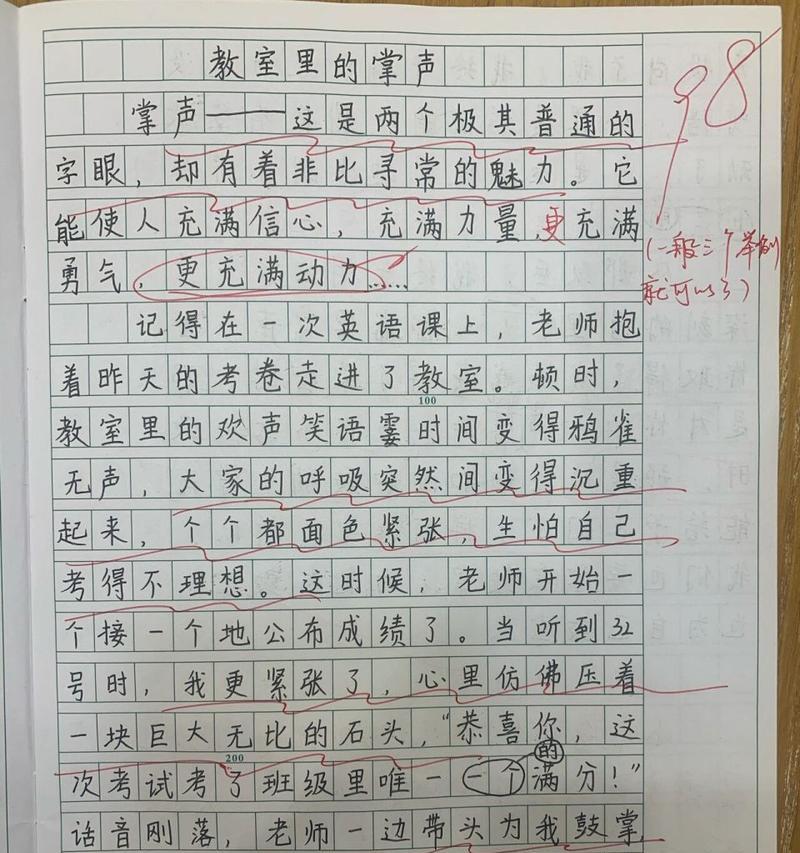 教室里的掌声
98
掌声——这是两个极其普通的
字眼，却有着非比寻常的魅力。它
能使人充满信心，充满力量，更充满
(一般三个举例
勇气，更充满动力……
就可以了)
记得在一次英语课上，老师抱
着昨天的考卷走进了教室。顿时，
100
教室里的欢声笑语霎时间变得鸦雀
无声，大家的呼吸突然间变得沉重
起来，个个都面色紧张，生怕自己
考得不理想。这时候，老师开始一
个接一个地公布成绩了。当听到32
号时，我更紧张了，心里仿佛压着
一块巨大无比的石头，“恭喜你，这
200
次考试考了班级里唯一一个的满分！”
话音刚落，老师一边带头为我鼓掌，